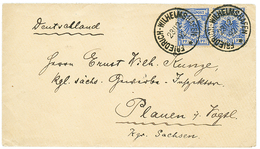 Deutschland
FRIEDRICH-WILHELMSHAFEN
Herrn Ernst Wilh. Kunze,
kgl. sächs. Gewerbe-Inspektor
Plauen i. Vogtl.
Kgr. Sachsen.